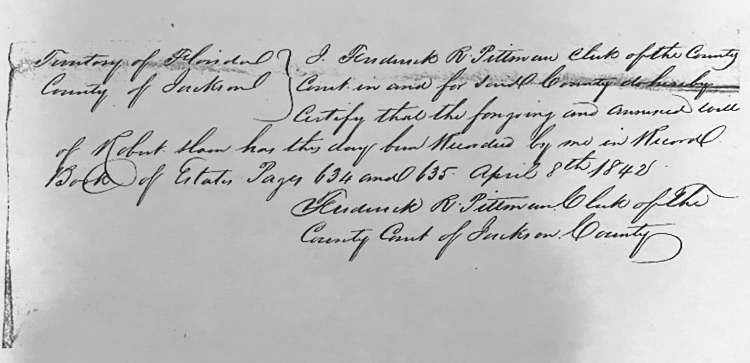 Territory of Florida } I. Frederick R. Pittman Clerk of the County
County of Jackson } Court in and for said County do hereby
Certify that the foregoing and annexed will
of Robert has this day been Recorded by me in Record
Book of Estates Pages 634 and 635. April 8th 1842
Frederick R. Pittman Clerk of the
County Court of Jackson County